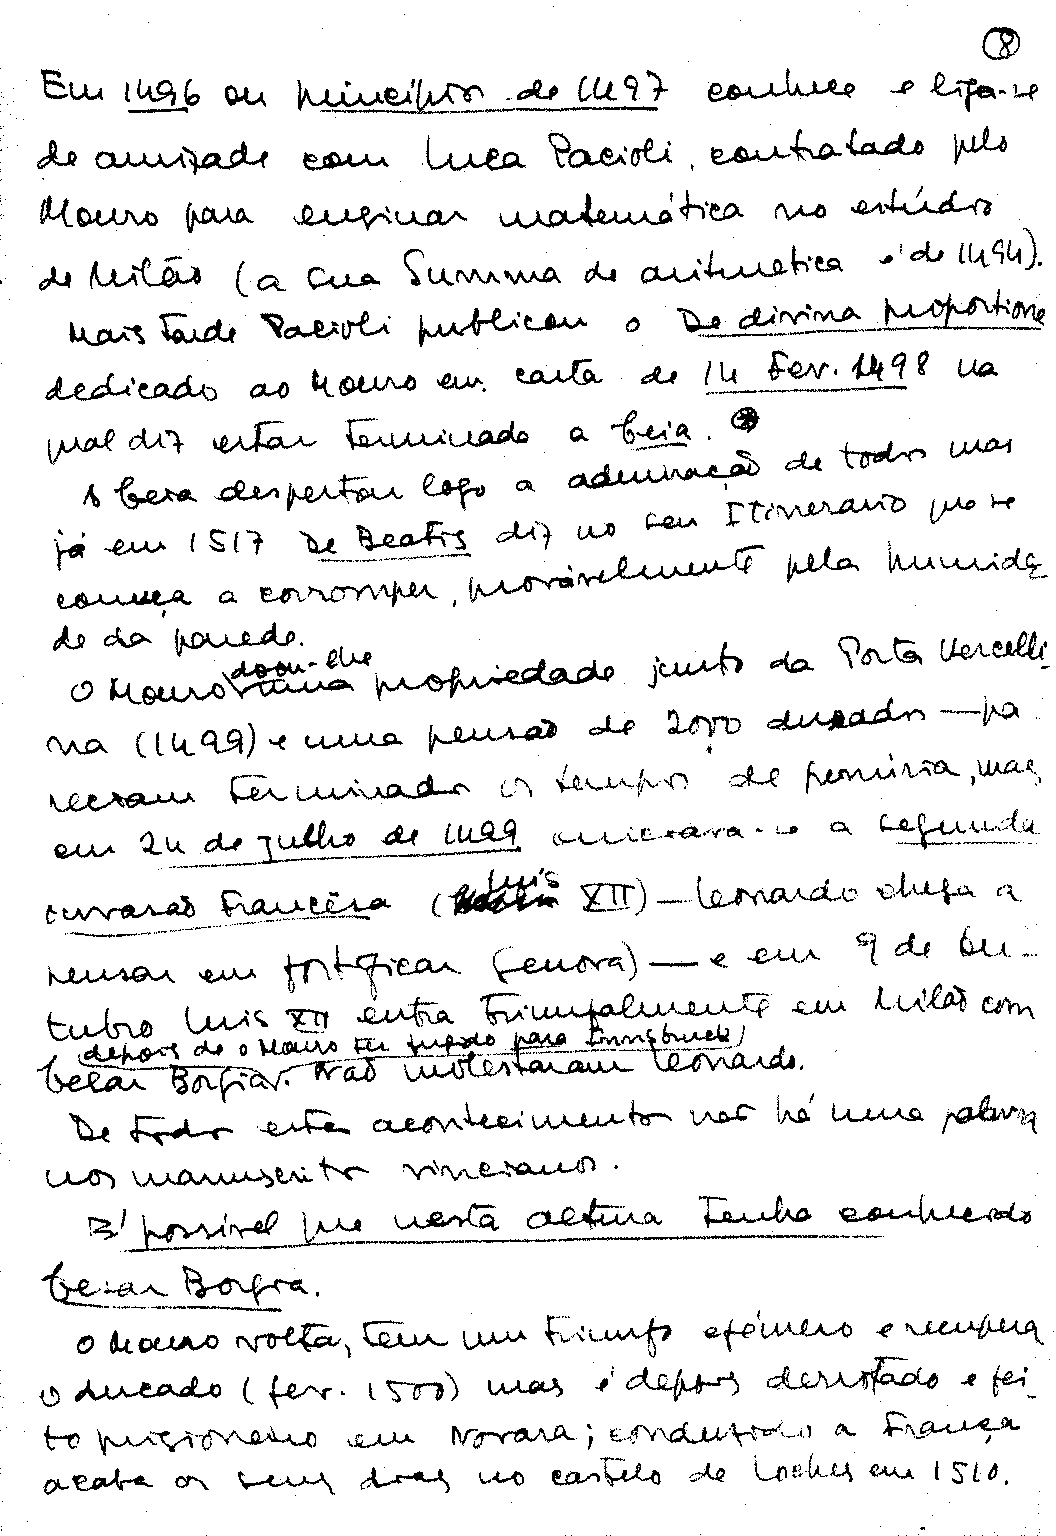 8
Em 1496 ou princípios de 1497 conhece e liga-se
de amizade com Luca Pacioli, contratado pelo
Mouro para ensinar matemática no estúdio
de Milão (a sua Summa de aritmetica é de 1494).
Mais tarde Pacioli publicou o De divina proportione
dedicado ao Mouro em carta de 14 Fev. 1498 na
qual diz estar terminado a Ceia.
A Ceia despertou logo a admiração de todos mas
já em 1517 De Beatis diz no seu Itinerario que se
começa a corromper, provàvelmente pela humida
de da parede.
O Mouro doou-lhe uma propriedade junto da Porta Vercelli
na (1499) e uma pensão de 2000 ducados — pa
reciam terminados os tempos de penúria, mas
em 24 de julho de 1499 iniciava-se a segunda
invasão francesa (Luis XII) — Leonardo chega a
pensar em fortificar Genova) — e em 9 de Ou-
tubro Luis XII entra triunfalmente em Milão com
depois de o Mouro ter fugido para Innsbruck
Cesar Borgia. Não molestaram Leonardo.
De todos estes acontecimentos não há uma palavra
nos manuscritos vincianos.
É possível que nesta altura tenha conhecido
Cesar Borgia.
O Mouro volta, tem um triunfo efémero e recupera
o ducado (fev. 1500) mas é depois derrotado e fei
to prisioneiro em Novara; conduzido a França
acaba os seus dias no castelo de Loches em 1510.